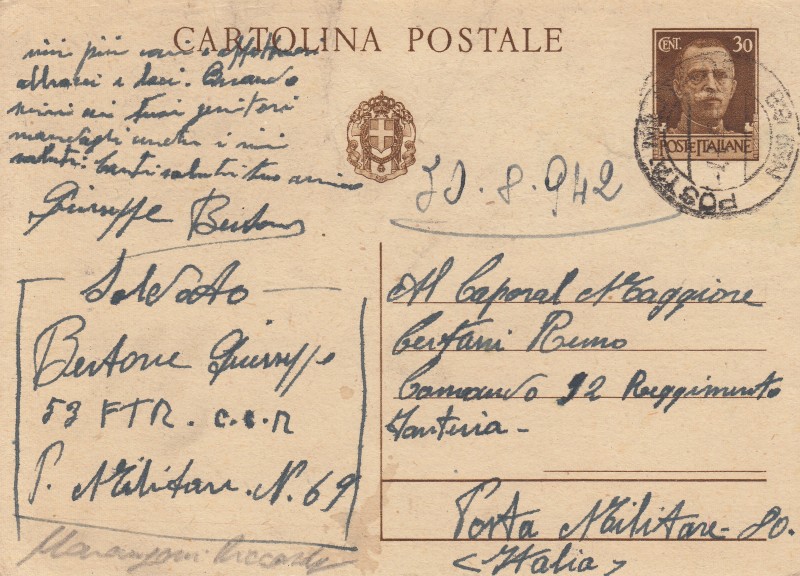 CARTOLINA POSTALE
CENT. 30
POSTE ITALIANE
miei più cari e affettuosi
abbracci e baci. Quando
scrivi ai tuoi genitori
mandagli anche i miei
saluti. Tanti saluti tuo amico
Giuseppe Bertone
30.8.942
POSTA
Soldato
Bertone Giuseppe
53 FTR. C.C.R
P. Militare. N. 69
Al Caporal Maggiore
Remo
Comando 92 Reggimento
Fanteria -
Posta Militare 80.
<Italia>